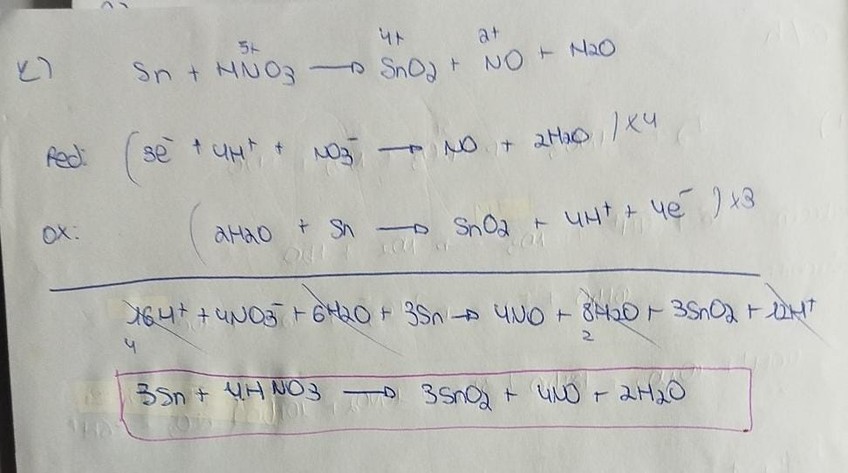 c) Sn + HNO3 → SnO2 + NO + H2O
5+ 4+ 2+
Red: (3e⁻ + 4H⁺ + NO3⁻ → NO + 2H2O) x4
OX: (2H2O + Sn → SnO2 + 4H⁺ + 4e⁻) x3
16H⁺ + 4NO3⁻ + 6H2O + 3Sn → 4NO + 8H2O + 3SnO2 + 12H⁺
4 2
3Sn + 4HNO3 → 3SnO2 + 4NO + 2H2O